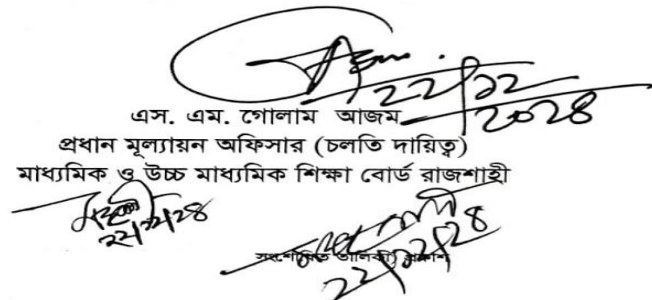 ২২/১২
২০২৪
এস. এম. গোলাম আজম
প্রধান মূল্যায়ন অফিসার (চলতি দায়িত্ব)
মাধ্যমিক ও উচ্চ মাধ্যমিক শিক্ষা বোর্ড রাজশাহী
২২/১২/২৪
২২/১২/২৪